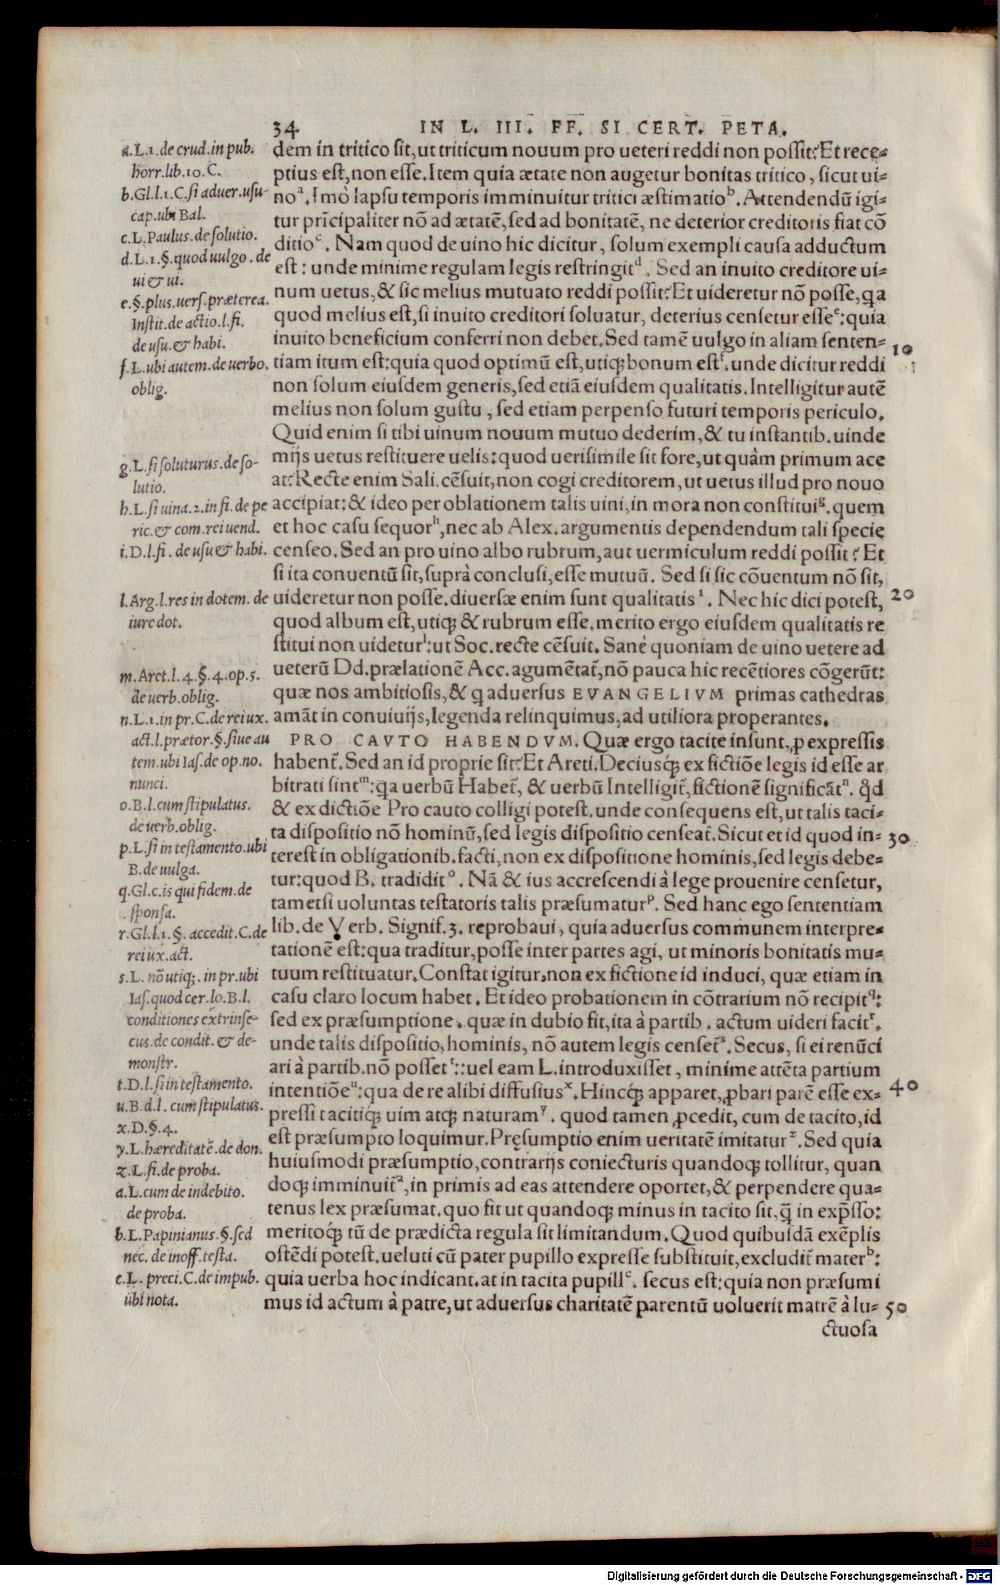 34 IN L. III. FF. SI CERT. PETA.
dem in tritico sit, ut triticum nouum pro ueteri reddi non possit? Et rece-
ptius est, non esse. Item quia ætate non augetur bonitas tritico, sicut ui-
no a. Imò lapsu temporis imminuitur tritici æstimatio b. Attendendũ igi-
tur prĩcipaliter nõ ad ætatẽ, sed ad bonitatẽ, ne deterior creditoris fiat cõ
ditio c. Nam quod de uino hic dicitur, solum exempli causa adductum
est: unde minime regulam legis restringit d. Sed an inuito creditore ui-
num uetus, & sic melius mutuato reddi possit? Et uideretur nõ posse, qa
quod melius est, si inuito creditori soluatur, deterius censetur esse e: quia
inuito beneficium conferri non debet. Sed tamẽ uulgo in aliam senten-
10
tiam itum est: quia quod optimũ est, utiqꝫ bonum est f. unde dicitur reddi
non solum eiusdem generis, sed etiã eiusdem qualitatis. Intelligitur autẽ
melius non solum gustu, sed etiam perpenso futuri temporis periculo.
Quid enim si tibi uinum nouum mutuo dederim, & tu instantib. uinde
mijs uetus restituere uelis: quod uerisimile sit fore, ut quàm primum ace
at? Recte enim Sali. cẽsuit, non cogi creditorem, ut uetus illud pro nouo
accipiat: & ideo per oblationem talis uini, in mora non constitui g. quem
et hoc casu sequor h, nec ab Alex. argumentis dependendum tali specie
censeo. Sed an pro uino albo rubrum, aut uermiculum reddi possit? Et
si ita conuentũ sit, suprà conclusi, esse mutuũ. Sed si sic cõuentum nõ sit,
uideretur non posse. diuersæ enim sunt qualitatis i. Nec hic dici potest, 20
quod album est, utiqꝫ & rubrum esse. merito ergo eiusdem qualitatis re
stitui non uidetur l: ut Soc. recte cẽsuit. Sanè quoniam de uino uetere ad
ueterũ Dd. prælationẽ Acc. agumẽtat̃, nõ pauca hic recẽtiores cõgerũt:
quæ nos ambitiosis, & qaduersus EVANGELIVM primas cathedras
amãt in conuiuijs, legenda relinquimus, ad utiliora properantes.
PRO CAVTO HABENDVM. Quæ ergo tacite insunt, ꝓ expressis
habent̃. Sed an id proprie sit? Et Areti. Deciusqꝫ ex fictiõe legis id esse ar
bitrati sint m: qa uerbũ Habet̃, & uerbũ Intelligit̃, fictionẽ significãt n. qđ
& ex dictiõe Pro cauto colligi potest. unde consequens est, ut talis taci-
ta dispositio nõ hominũ, sed legis dispositio censeat̃. Sicut et id quod in- 30
terest in obligationib. facti, non ex dispositione hominis, sed legis debe-
tur: quod B. tradidit o. Nã & ius accrescendi à lege prouenire censetur,
tametsi uoluntas testatoris talis præsumatur p. Sed hanc ego sententiam
lib. de Verb. Signif. 3. reprobaui, quia aduersus communem interpre-
tationẽ est: qua traditur, posse inter partes agi, ut minoris bonitatis mu-
tuum restituatur. Constat igitur, non ex fictione id induci, quæ etiam in
casu claro locum habet. Et ideo probationem in cõtrarium nõ recipit q:
sed ex præsumptione. quæ in dubio fit, ita à partib. actum uideri facit r.
unde talis dispositio, hominis, nõ autem legis censet̃ s. Secus, si ei renũci
ari à partib. nõ posset t: uel eam L. introduxisset, minime attẽta partium
intentiõe u: qua de re alibi diffusius x. Hincqꝫ apparet, ꝓbari parẽ esse ex- 40
pressi tacitiqꝫ uim atqꝫ naturam y. quod tamen ꝓcedit, cum de tacito, id
est præsumpto loquimur. Pręsumptio enim ueritatẽ imitatur z. Sed quia
huiusmodi præsumptio, contrarijs coniecturis quandoqꝫ tollitur, quan
doqꝫ imminuit̃ a, in primis ad eas attendere oportet, & perpendere qua-
tenus lex præsumat. quo fit ut quandoqꝫ minus in tacito sit, q̃ in exp̃sso:
meritoqꝫ tũ de prædicta regula sit limitandum. Quod quibusdã exẽplis
ostẽdi potest. ueluti cũ pater pupillo expresse substituit, excludit̃ mater b:
quia uerba hoc indicant. at in tacita pupill c. secus est: quia non præsumi
mus id actum à patre, ut aduersus charitatẽ parentũ uoluerit matrẽ à lu- 50
ctuosa
a. L. 1. de crud. in pub.
horr. lib. 10. C.
b. Gl. l. 1. C. si aduer. usu-
cap. ubi Bal.
c. L. Paulus. de solutio.
d. L. 1. §. quod uulgo. de
ui & ui.
e. §. plus. uers. præterea.
Instit. de actio. l. fi.
de usu. & habi.
f. L. ubi autem. de uerbo.
oblig.
g. L. si soluturus. de so-
lutio.
h. L. si uina. 2. in fi. de pe
ric. & com. rei uend.
i. D. l. fi. de usu & habi.
l. Arg. l. res in dotem. de
iure dot.
m. Arct. l. 4. §. 4. op. 5.
de uerb. oblig.
n. L. 1. in pr. C. de rei ux.
act. l. prætor. §. siue au
tem. ubi Ias. de op. no.
nunci.
o. B. l. cum stipulatus.
de uerb. oblig.
p. L. si in testamento. ubi
B. de uulga.
q. Gl. c. is qui fidem. de
sponsa.
r. Gl. l. 1. §. accedit. C. de
rei ux. act.
s. L. nõ utiqꝫ. in pr. ubi
Ias. quod cer. lo. B. l.
conditiones extrinse-
cus. de condit. & de-
monstr.
t. D. l. si in testamento.
u. B. d. l. cum stipulatus.
x. D. §. 4.
y. L. hæreditatẽ. de don.
z. L. fi. de proba.
a. L. cum de indebito.
de proba.
b. L. Papinianus. §. sed
nec. de inoff. testa.
c. L. preci. C. de impub.
ubi nota.
Digitalisierung gefördert durch die Deutsche Forschungsgemeinschaft - DFG